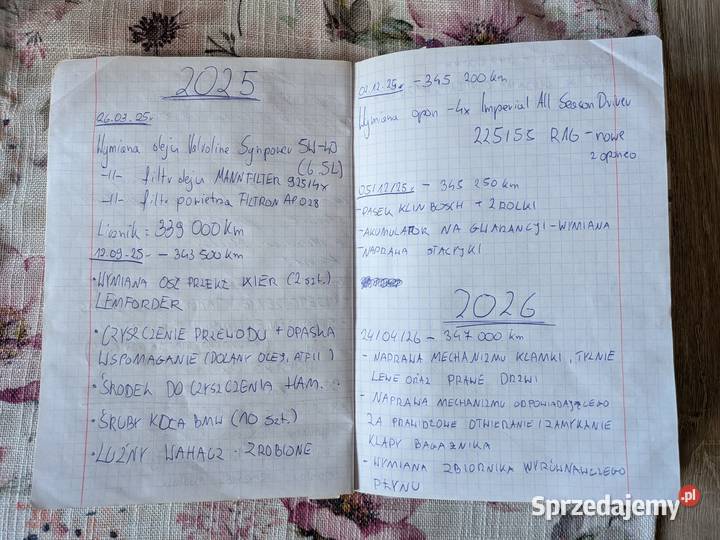 2025
26.03.25r
Wymiana oleju Valvoline Synpower 5W-40
(6.5L)
-11- filtr oleju MANNFILTER 925/4x
-11- filtr powietrza FILTRON AP028
Licznik = 339 000 km
12.09.25r - 343 500 km
• WYMIANA OSŁ PRZEKŁ KIER (2 szt.)
LEMFORDER
• CZYSZCZENIE PRZEWODU + OPASKA
WSPOMAGANIE (DOLANY OLEJ, ATF II)
• ŚRODEK DO CZYSZCZENIA HAM.
• ŚRUBY KOŁA BMW (10 szt.)
• LUŹNY WAHACZ - ZROBIONE
02.12.25r - 345 200 km
Wymiana opon - 4x Imperial All Season Driver
225/55 R16 - nowe
z oponeo
05/12/25r - 345 250 km
- PASEK KLIN BOSCH + 2 ROLKI
- AKUMULATOR NA GWARANCJI - WYMIANA
- NAPRAWA STACYJKI
2026
24/04/26 - 347 000 km
- NAPRAWA MECHANIZMU KLAMKI, TYLNIE
LEWE ORAZ PRAWE DRZWI
- NAPRAWA MECHANIZMU ODPOWIADAJĄCEGO
ZA PRAWIDŁOWE OTWIERANIE/ZAMYKANIE
KLAPY BAGAŻNIKA
- WYMIANA ZBIORNIKA WYRÓWNAWCZEGO
PŁYNU
Sprzedajemy.pl